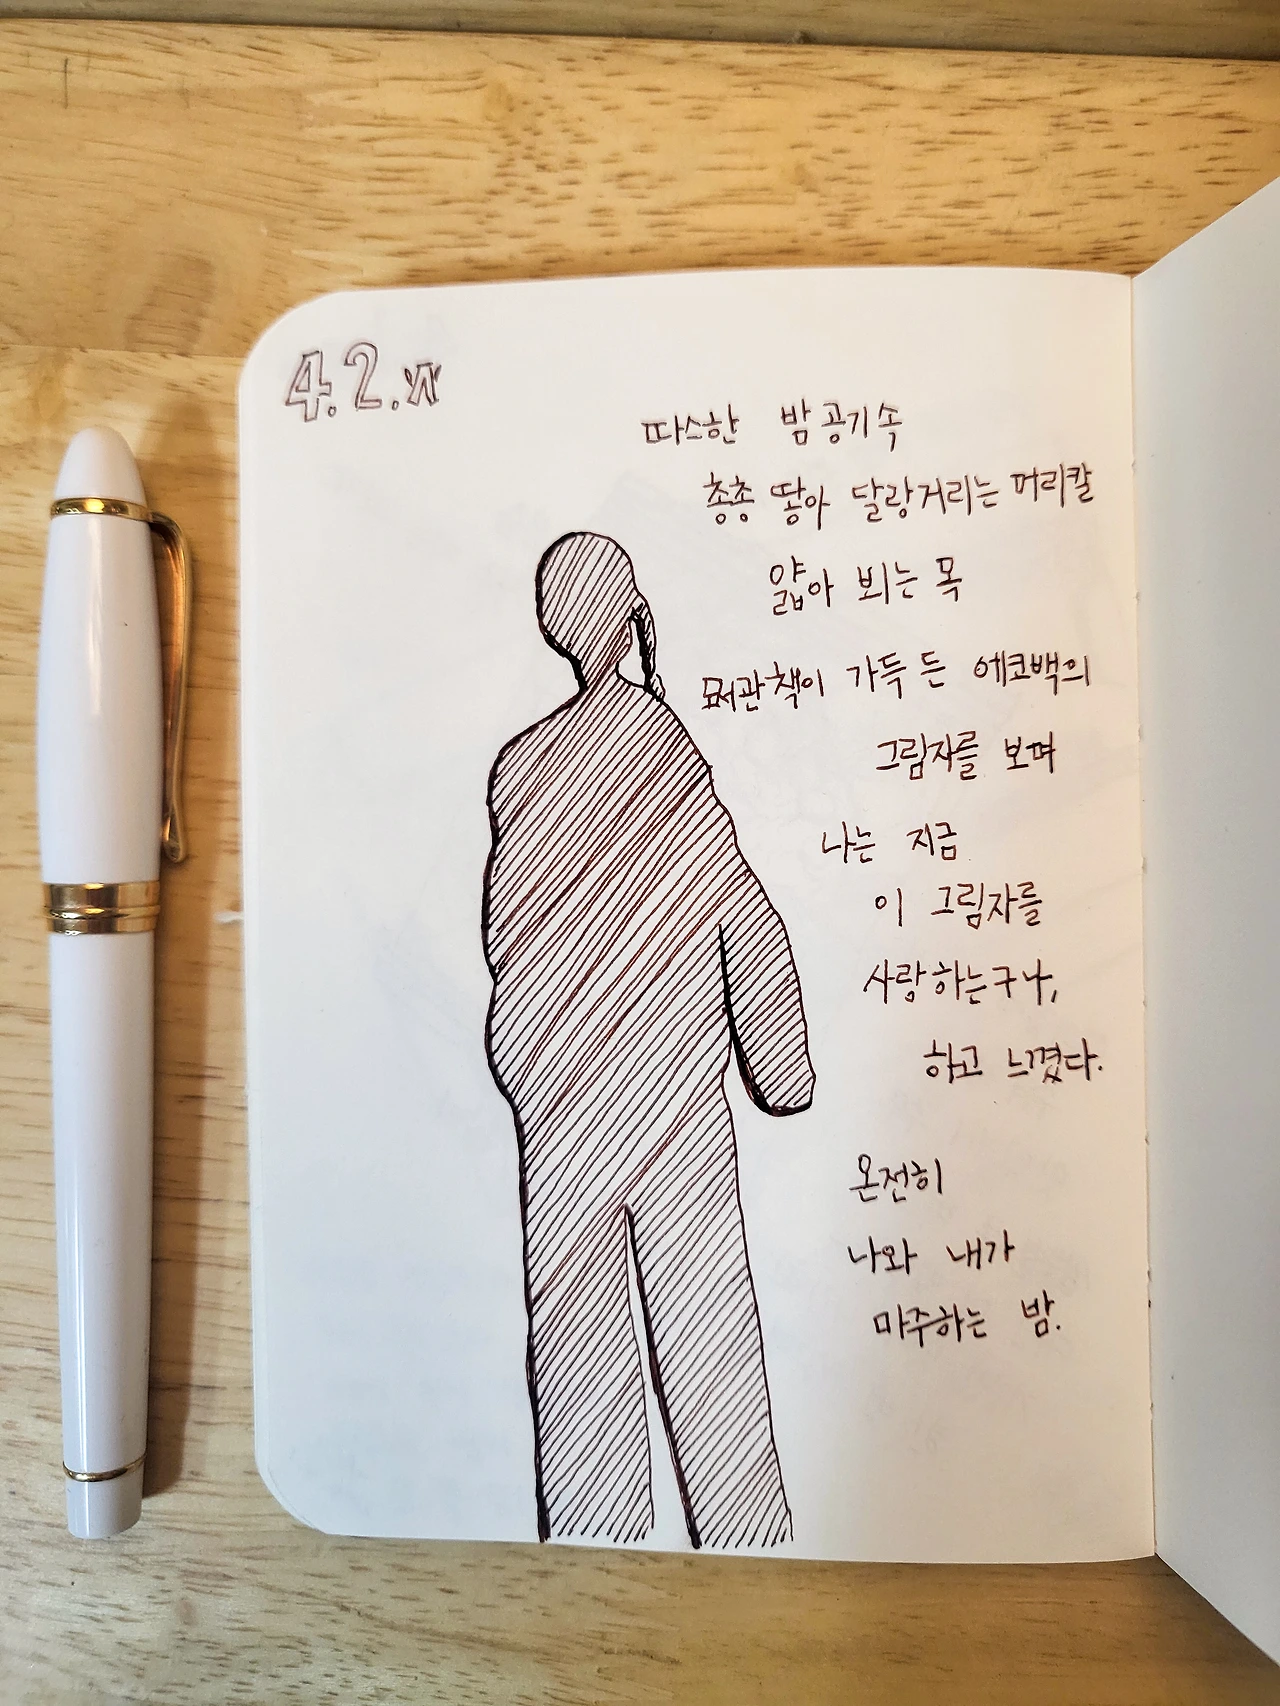 4.2.
따스한 밤공기 속
총총 땋아 달랑거리는 머리칼
얇아 뵈는 목
도서관책이 가득 든 에코백의
그림자를 보며
나는 지금
이 그림자를
사랑하는구나,
하고 느꼈다.
온전히
나와 내가
마주하는 밤.